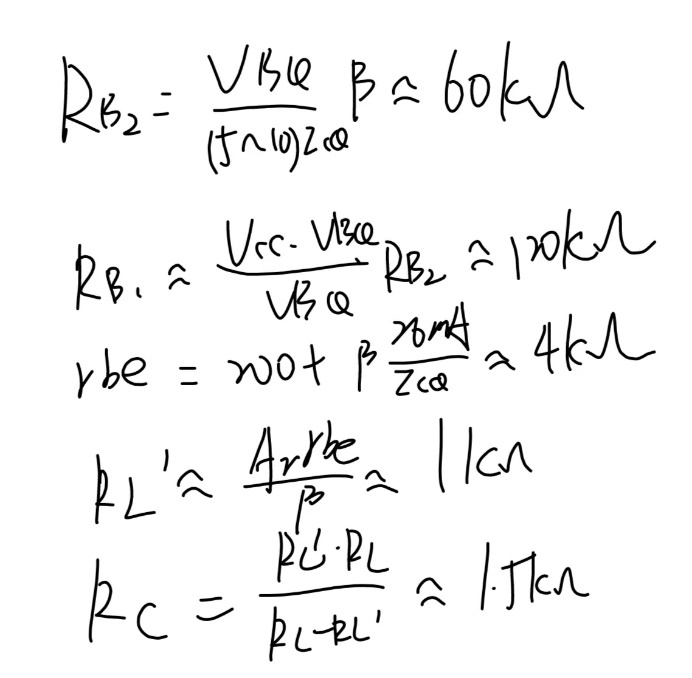 R_{B2} = \frac{V_{BQ}}{(5~10)I_{CQ}} β ≈ 60kΩ
R_{B1} ≈ \frac{V_{CC} - V_{BQ}}{V_{BQ}} R_{B2} ≈ 120kΩ
rbe = 200 + β \frac{26mA}{I_{CQ}} ≈ 4kΩ
R_L' ≈ \frac{A_v rbe}{β} ≈ 1kΩ
R_C = \frac{R_L' · R_L}{R_L - R_L'} ≈ 1.5kΩ